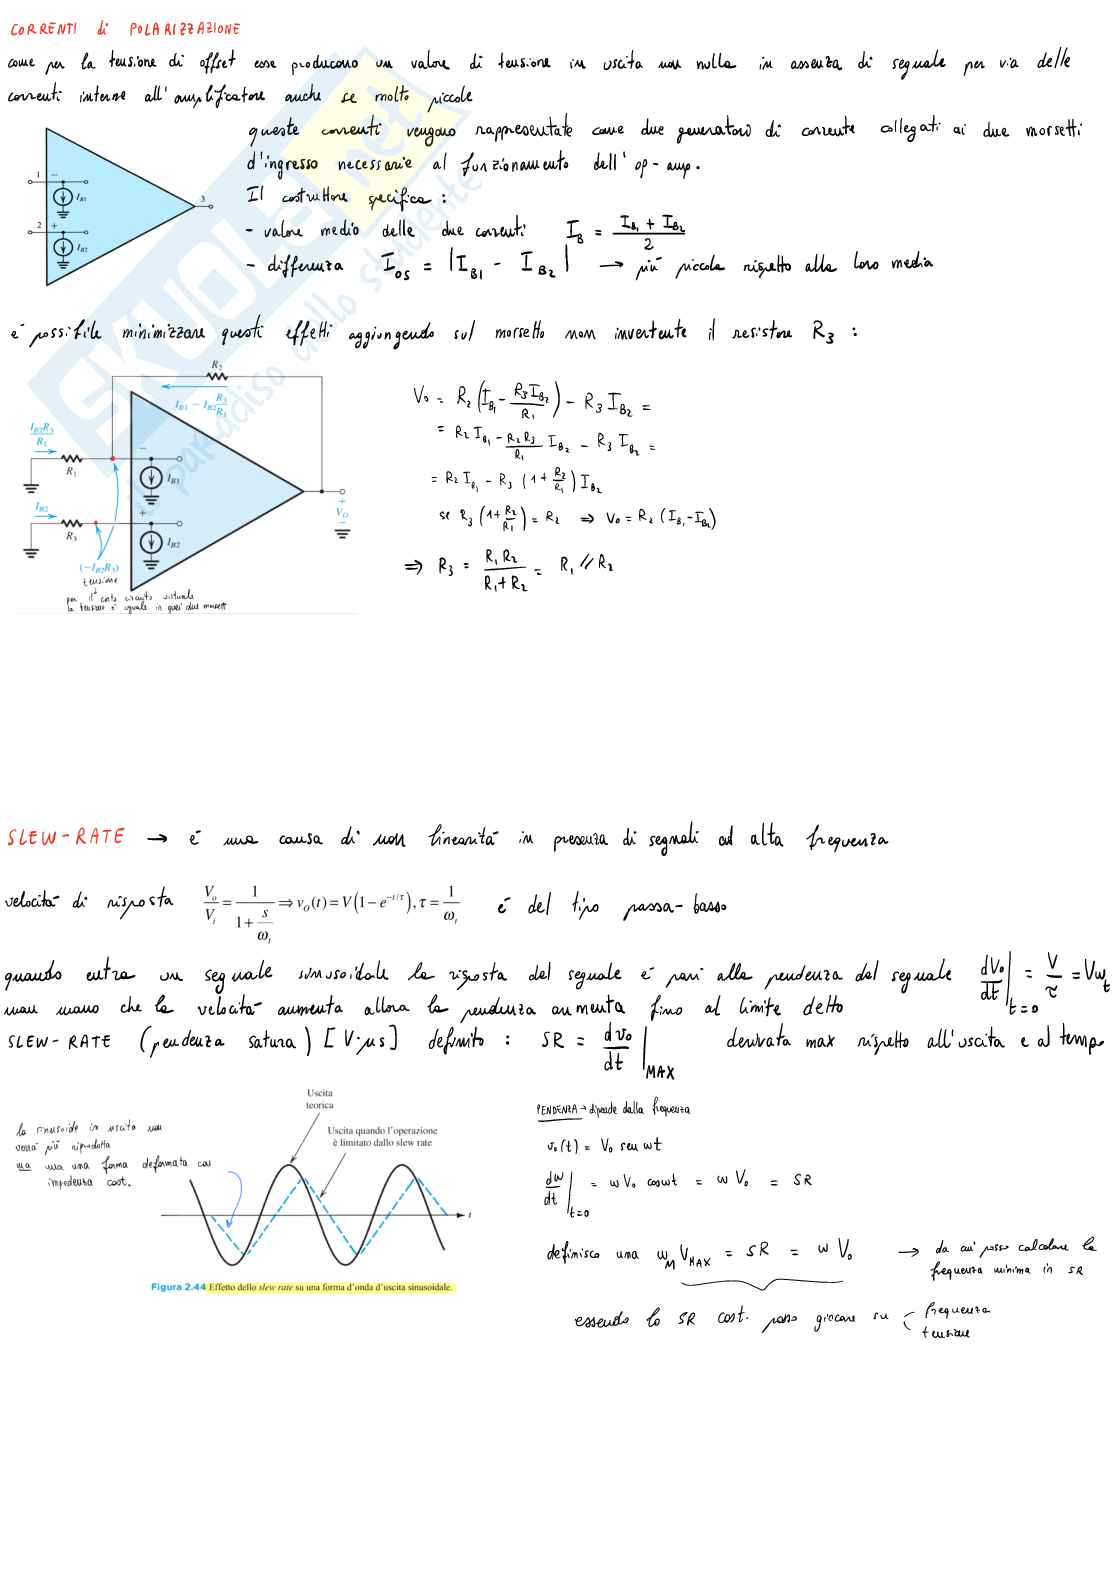 CORRENTI di POLARIZZAZIONE
come per la tensione di offset esse producono un valore di tensione in uscita non nulla in assenza di segnale per via delle
correnti interne all'amplificatore anche se molto piccole
queste correnti vengono rappresentate come due generatori di corrente collegati ai due morsetti
d'ingresso necessarie al funzionamento dell'op-amp.
Il costruttore specifica:
- valore medio delle due correnti I_B = (I_B1 + I_B2)/2
- differenza I_OS = |I_B1 - I_B2| → più piccola rispetto alla loro media
1 − I_B1
2 + I_B2
3
è possibile minimizzare questi effetti aggiungendo sul morsetto non invertente il resistore R3 :
R2
I_B1 − I_B2 R3/R1
I_B2 R3/R1
R1
− I_B1
I_B2
R3
+ I_B2
+ V_O −
(−I_B2 R3)
tensione
per il corto circuito virtuale
la tensione è uguale in quei due morsetti
V0 = R2 (I_B1 - R3 I_B2/R1) - R3 I_B2 =
= R2 I_B1 - R2 R3/R1 I_B2 - R3 I_B2 =
= R2 I_B1 - R3 (1 + R2/R1) I_B2
se R3 (1 + R2/R1) = R2 ⇒ V0 = R2 (I_B1 - I_B2)
⇒ R3 = R1 R2/(R1 + R2) = R1 // R2
SLEW-RATE → è una causa di non linearità in presenza di segnali ad alta frequenza
velocità di risposta V_o/V_i = 1/(1 + s/ω_t) ⇒ v_O(t) = V(1 − e^(−t/τ)), τ = 1/ω_t è del tipo passa-basso
quando entra un segnale sinusoidale la risposta del segnale è pari alla pendenza del segnale dV0/dt |t=0 = V/τ = Vω_t
man mano che la velocità aumenta allora la pendenza aumenta fino al limite detto
SLEW-RATE (pendenza satura) [V·μs] definito : SR = dv0/dt |MAX derivata max rispetto all'uscita e al tempo
la sinusoide in uscita non
verrà più riprodotta
ma una forma deformata con
impedenza cost.
Uscita
teorica
Uscita quando l'operazione
è limitato dallo slew rate
t
Figura 2.44 Effetto dello slew rate su una forma d'onda d'uscita sinusoidale.
PENDENZA → dipende dalla frequenza
v0(t) = V0 sen ωt
dv0/dt |t=0 = ω V0 cosωt = ω V0 = SR
definisco una ω_M V_MAX = SR = ω V0 → da cui posso calcolare la
frequenza minima in SR
essendo lo SR cost. posso giocare su
frequenza
tensione
SKUOLA.net
il paradiso dello studente